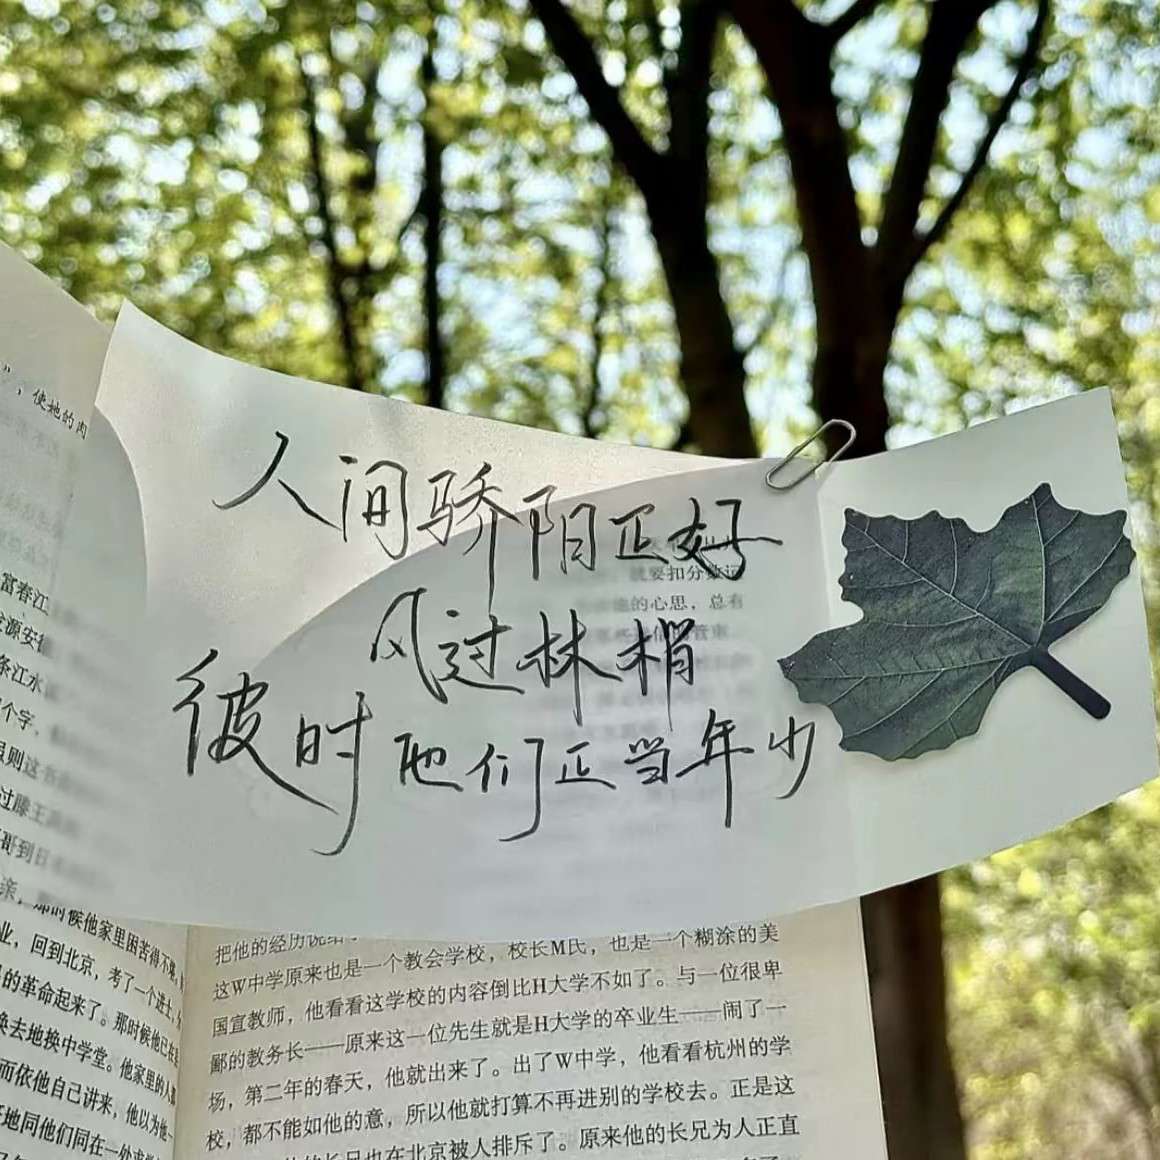 人间骄阳正好
风过林梢
彼时他们正当年少
”，使她的肉
富春江
条江水
个字，
则这书
过滕王
哥到日
亲，那时候他家里困苦得不
业，回到北京，考了一个进士，
的革命起来了。那时候他已在
换去地换中学堂。他家里的人
而依他自己讲来，他以为他
地同他们同在一处求学
就要扣分数记
的心思，总有
把他的经历说给
这W中学原来也是一个教会学校，校长M氏，也是一个糊涂的美
国宣教师，他看看这学校的内容倒比H大学不如了。与一位很卑
鄙的教务长——原来这一位先生就是H大学的卒业生——闹了一
场，第二年的春天，他就出来了。出了W中学，他看看杭州的学
校，都不能如他的意，所以他就打算不再进别的学校去。正是这
的长兄也在北京被人排斥了。原来他的长兄为人正直